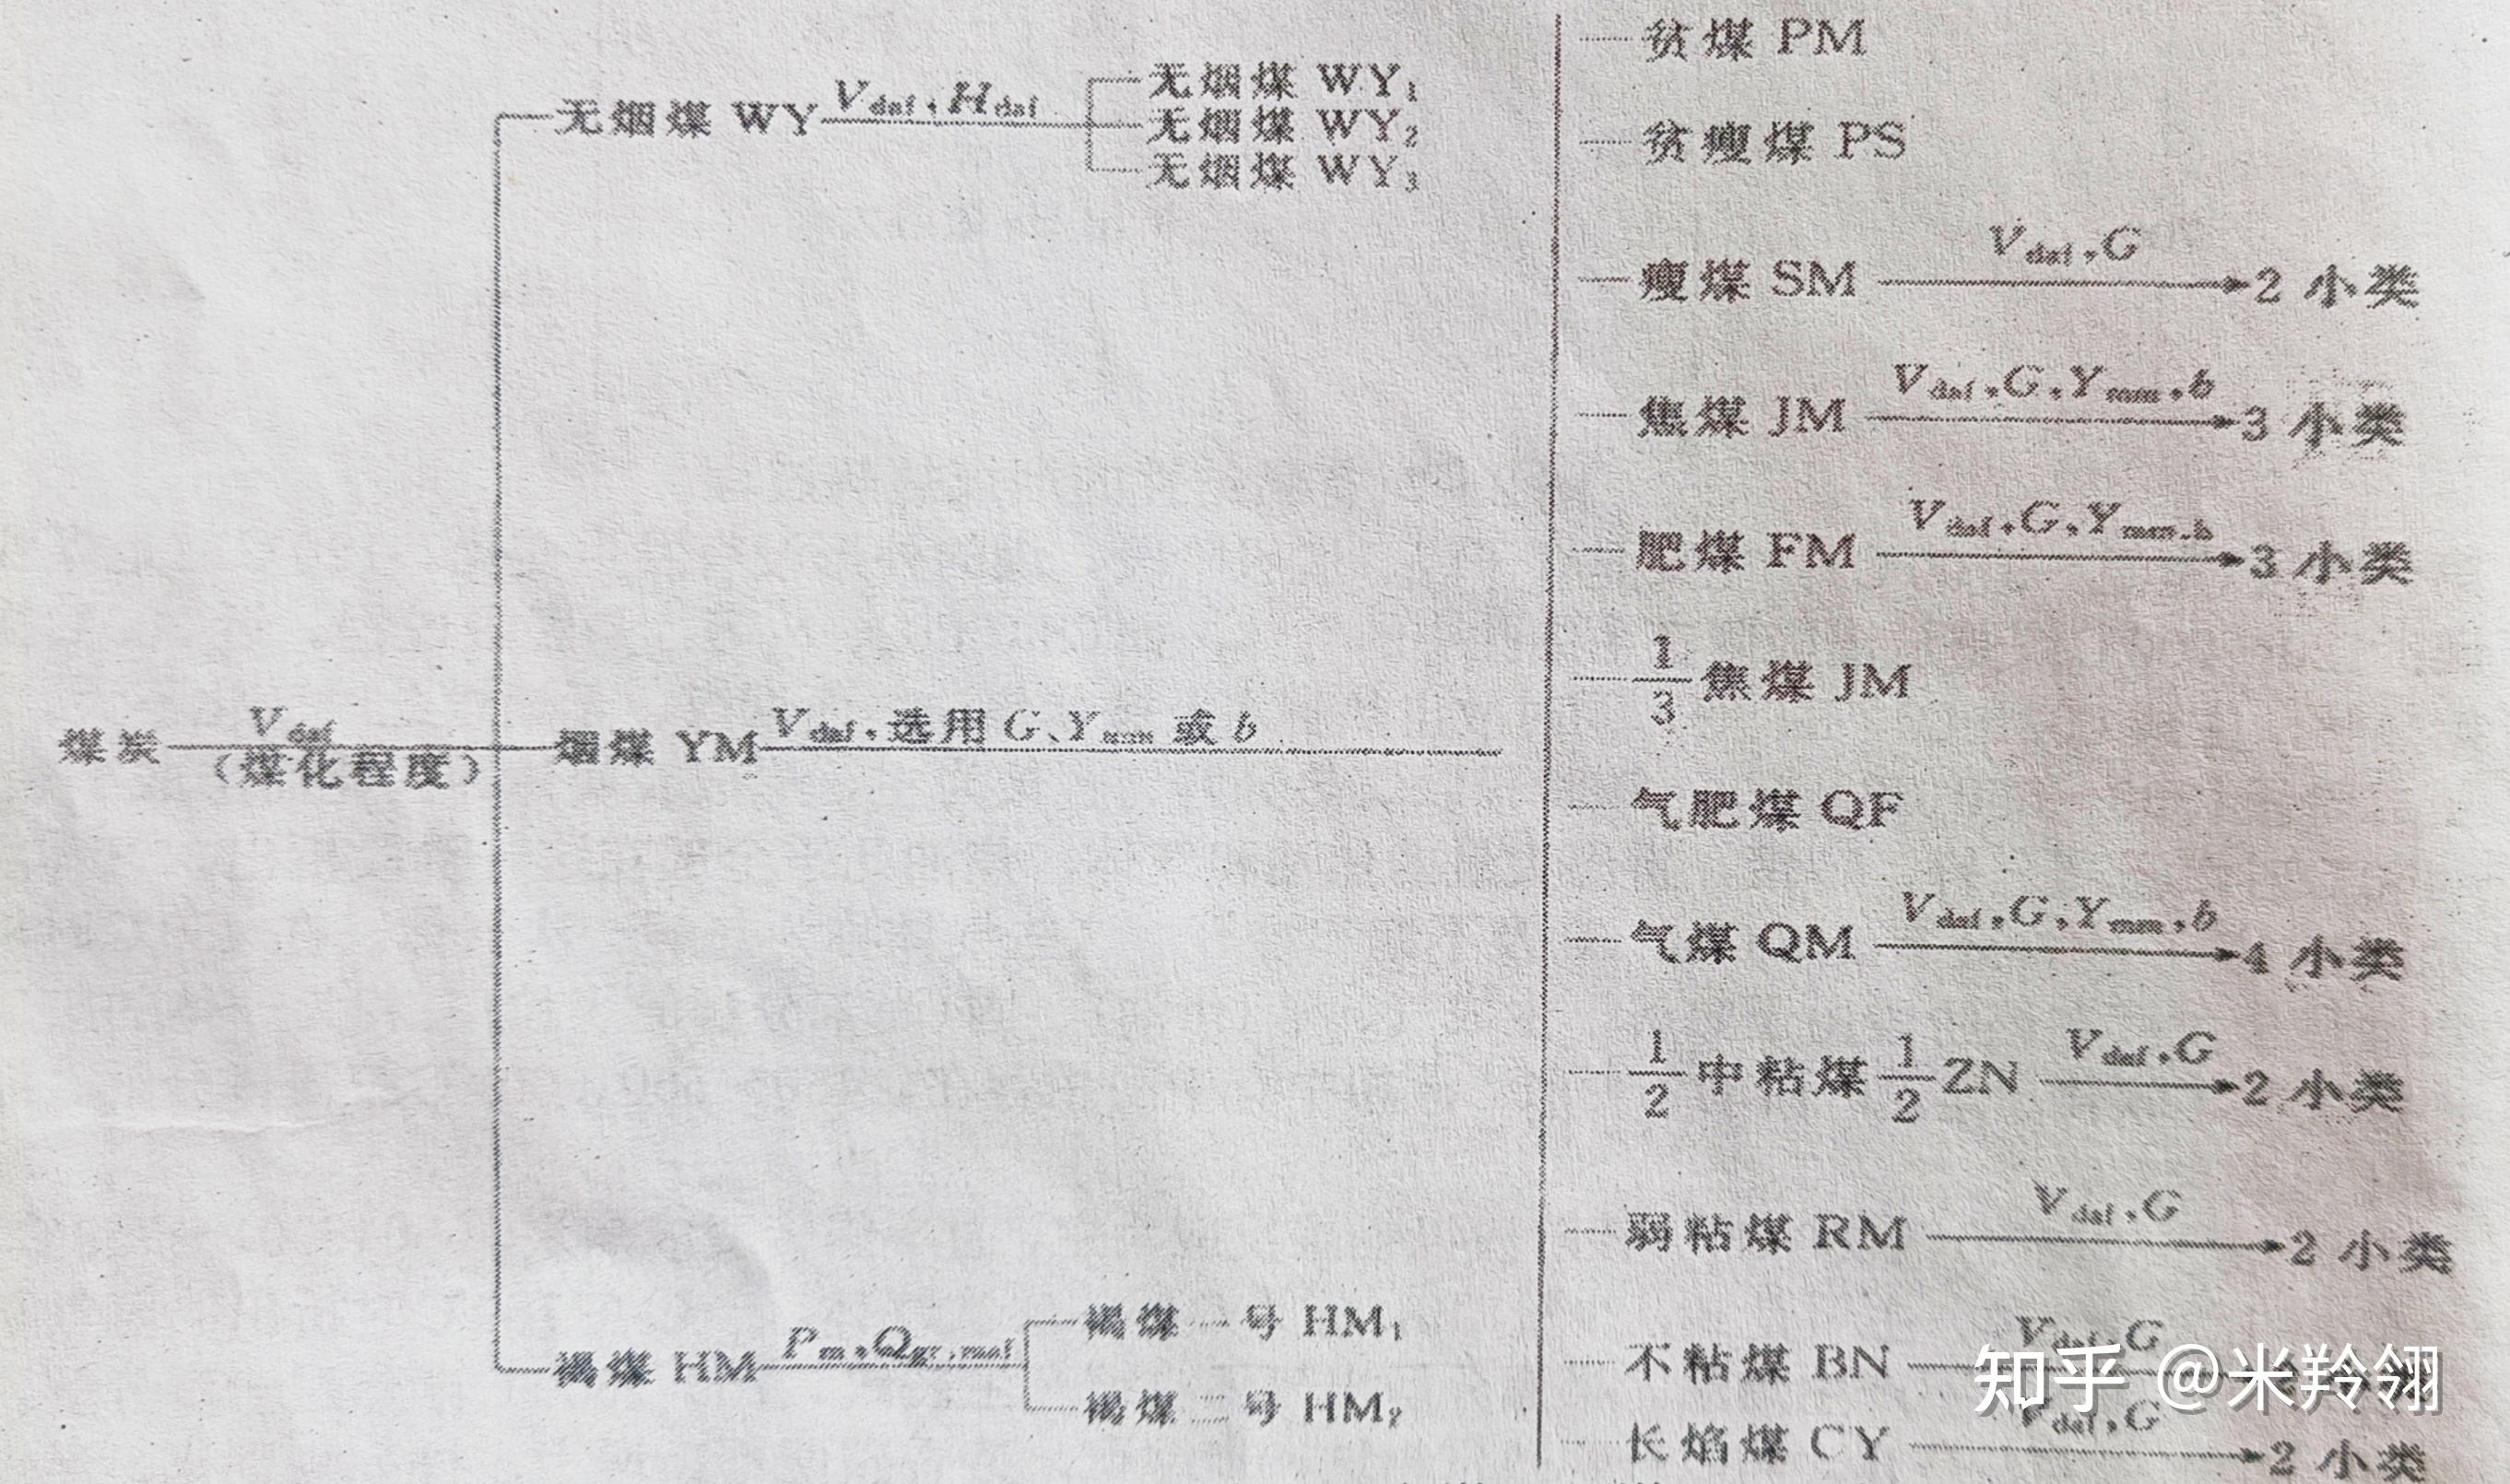 煤炭
V daf
(煤化程度)
无烟煤 WY
V daf, H daf
无烟煤 WY₁
无烟煤 WY₂
无烟煤 WY₃
烟煤 YM
V daf, 选用 G、Y mm 或 b
褐煤 HM
P m, Q gr, maf
褐煤一号 HM₁
褐煤二号 HM₂
贫煤 PM
贫瘦煤 PS
瘦煤 SM
V daf, G
2 小类
焦煤 JM
V daf, G, Y mm, b
3 小类
肥煤 FM
V daf, G, Y mm, b
3 小类
1/3 焦煤 JM
气肥煤 QF
气煤 QM
V daf, G, Y mm, b
4 小类
1/2 中粘煤 1/2 ZN
V daf, G
2 小类
弱粘煤 RM
V daf, G
2 小类
不粘煤 BN
V daf, G
长焰煤 CY
V daf, G
2 小类
知乎 @米羚翎